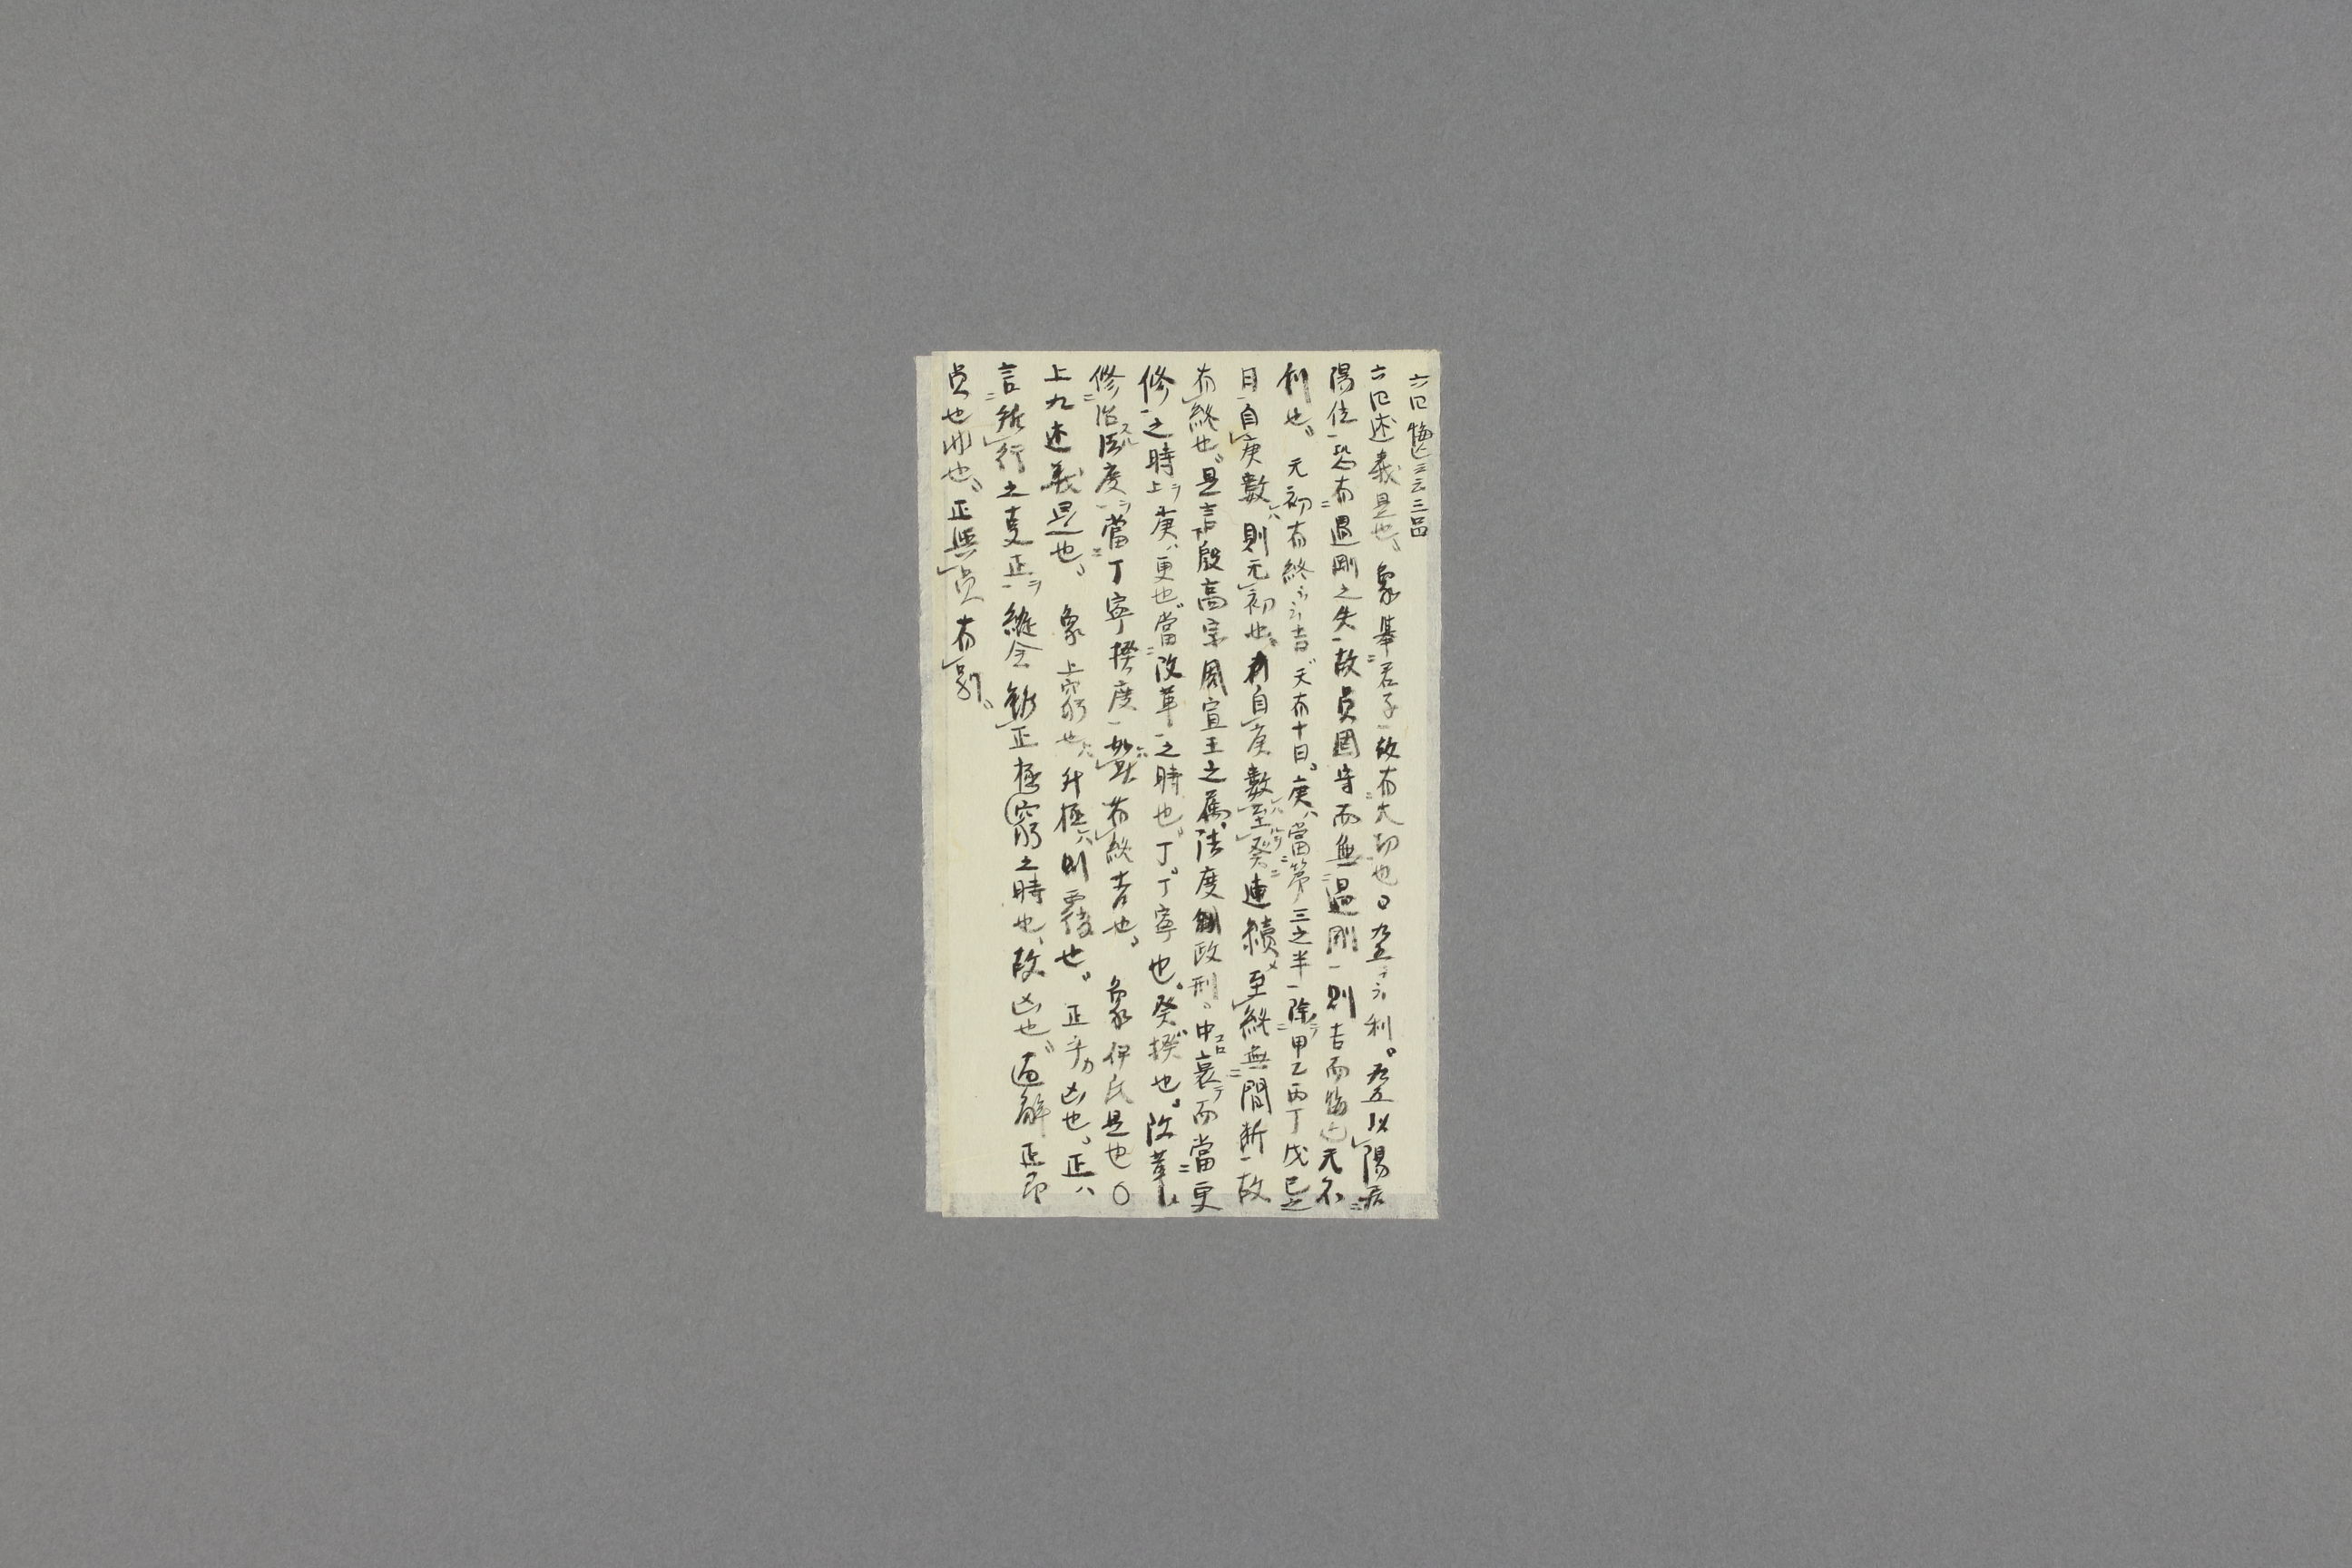 六四悔亡云云三品
六四述義是也、象挙君子故有大功也〇九五云云利。九五以陽居
陽位恐有過剛之失故貞固守而無過剛則吉而悔亡无不
利也。无初有終云云吉天有十日。庚ハ當第三之半除甲乙丙丁戊己之
日自庚數ハ則无初也。自庚數至癸連續〆至終無間断故
有終也。是言下殷高宗周宣王之属、法度政刑。中コロ衰テ而當更
修之時上ヲ庚ハ更也當改革之時也。丁。丁寧也。癸揆也。改革
修治スル法度ヲ當丁寧揆度如此有終吉也。象伊氏是也〇
上九述義是也、象上窮也ハ升極ハ則覆也。正乎カ凶也、正ハ
言所行之事正ヲ縦令所正極窮之時也、故凶也。通解正即
貞也非也。正與貞有別。